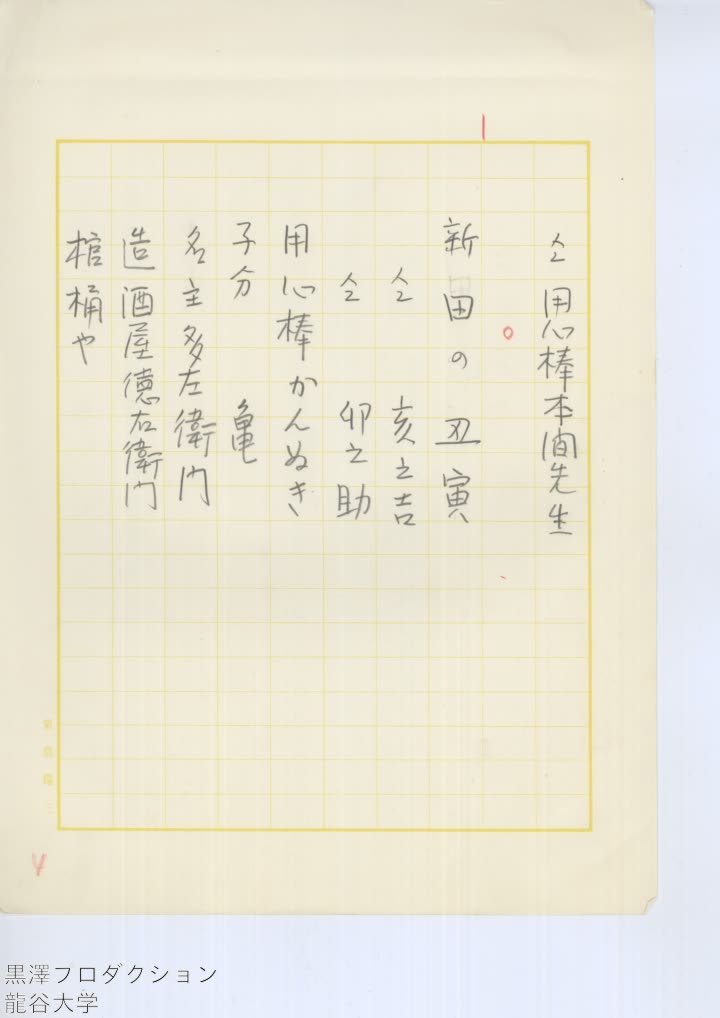 仝 用心棒本間先生
新田の 丑寅
仝 亥之吉
仝 卯之助
用心棒かんぬき
子分 亀
名主多左衛門
造酒屋徳右衛門
棺桶や
菊島隆三
黒澤フロダクション
龍谷大学